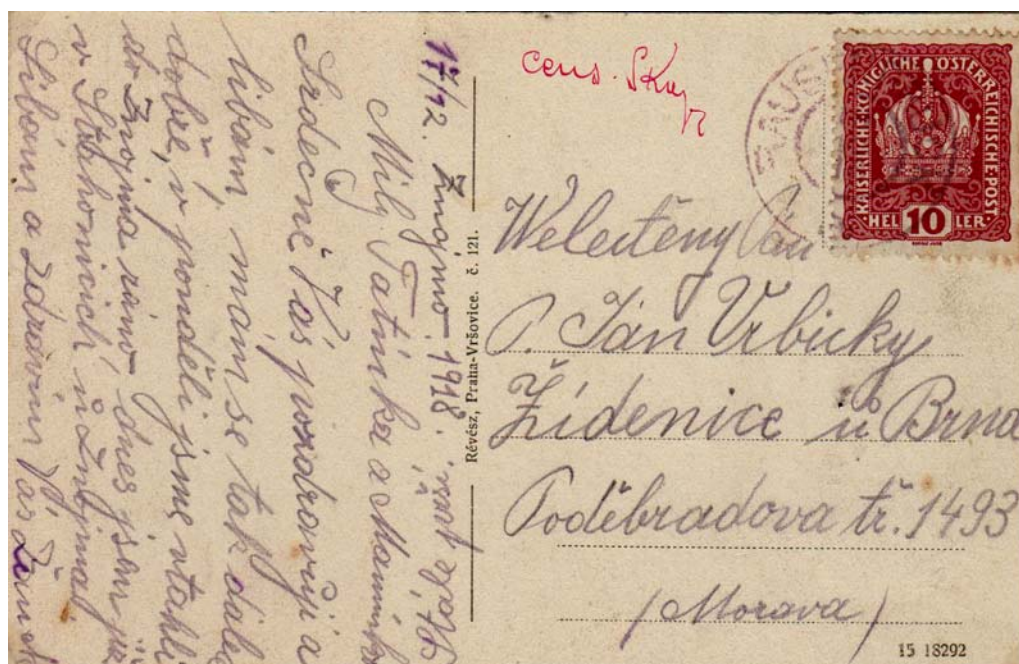 17/12. Znojmo. 1918.
Milý Tatínku a Maminko
Srdečně Vás pozdravuji a
libám, mám se tak dále
dobře, v pondělí jsme vtáhli
do Znojma ráno dnes jsem
v Stohonicích u Znojma
Líbám a zdravím Vás
Révész, Praha-Vršovice. č. 121.
cens.
KAISERLICHE KÖNIGLICHE ÖSTERREICHISCHE POST
HELLER
10
Welectěný Pan
P. Ján Vrbicky
Židenice ů Brna
Poděbradova tř. 1493
(Morava)
15 18292